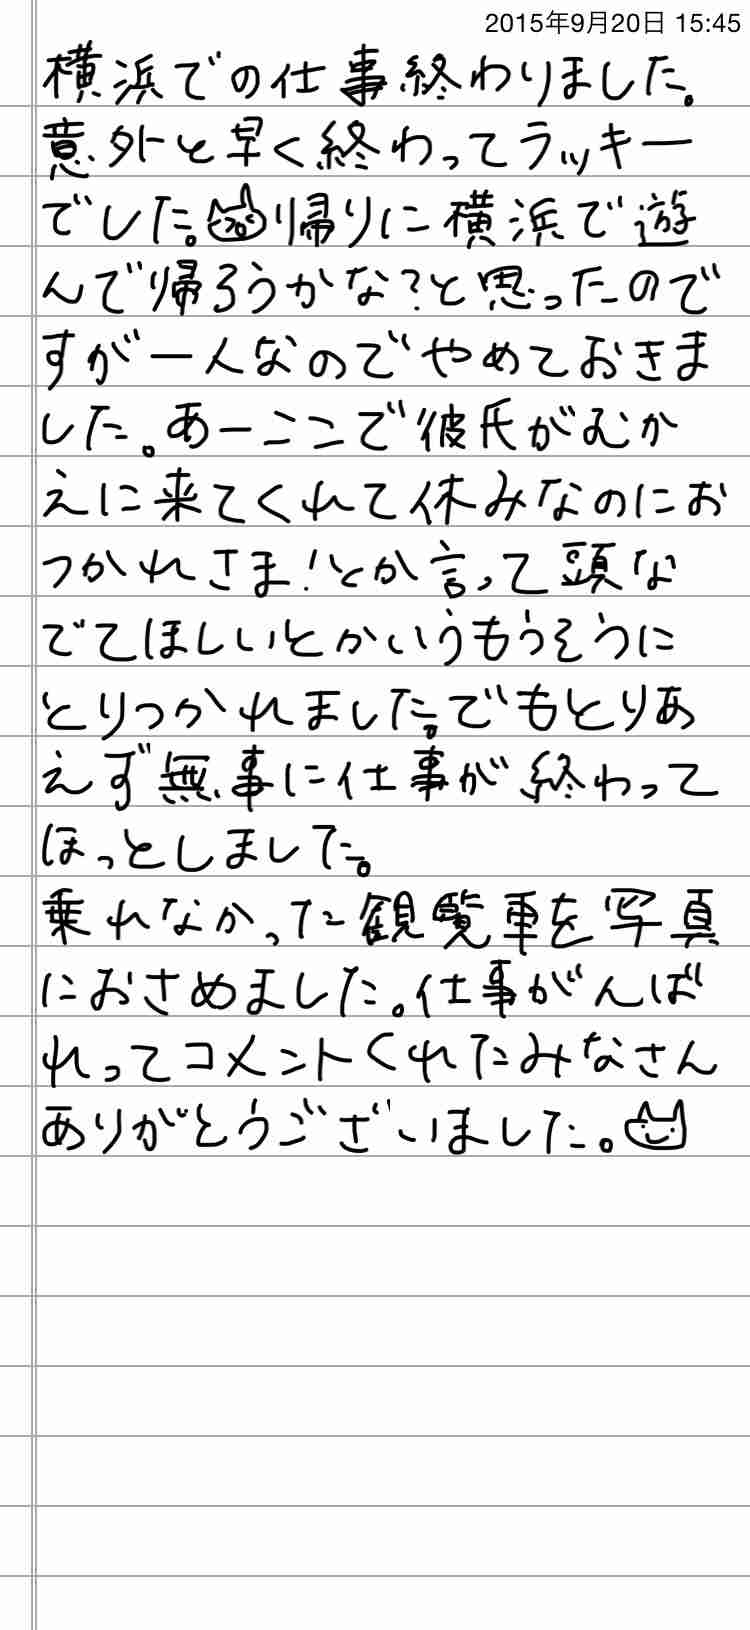 2015年9月20日 15:45
横浜での仕事終わりました。
意外と早く終わってラッキー
でした。帰りに横浜で遊
んで帰ろうかな?と思ったので
すが一人なのでやめておきま
した。あーここで彼氏がむか
えに来てくれて休みなのにお
つかれさま!とか言って頭な
でてほしいとかいうもうそうに
とりつかれました。でもとりあ
えず無事に仕事が終わって
ほっとしました。
乗れなかった観覧車を写真
におさめました。仕事がんば
れってコメントくれたみなさん
ありがとうございました。